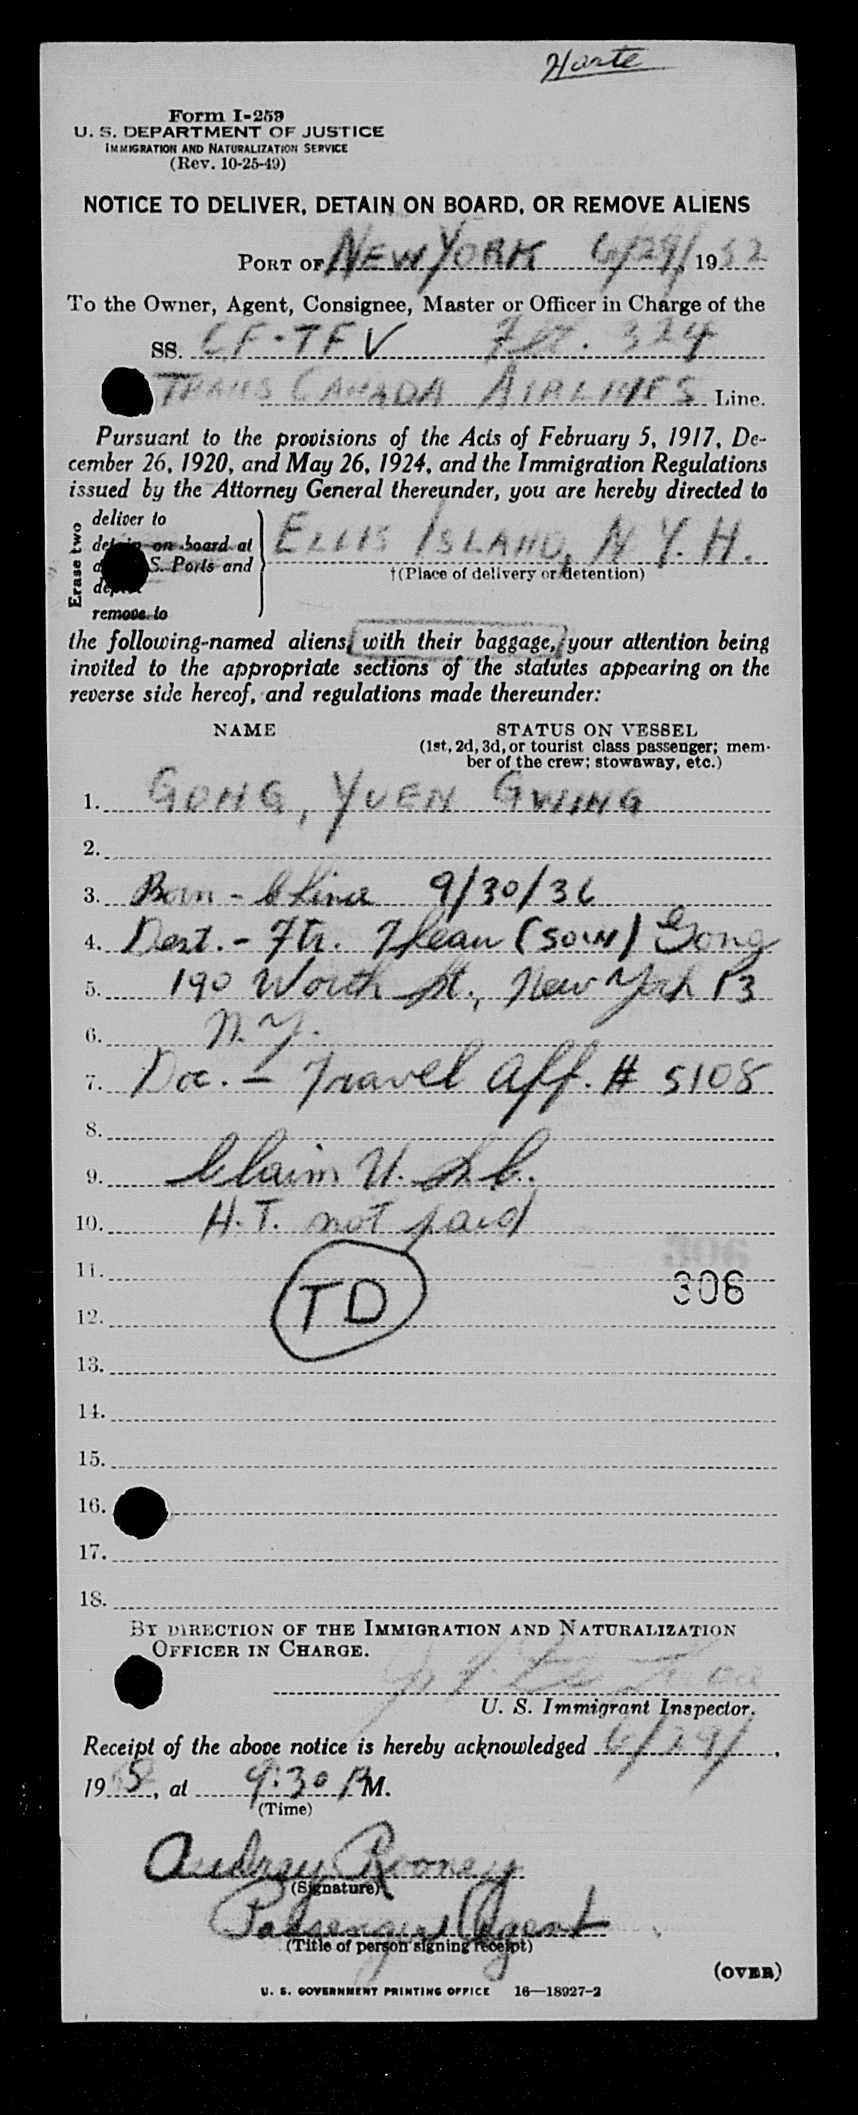 Harte
Form I-259
U. S. DEPARTMENT OF JUSTICE
IMMIGRATION AND NATURALIZATION SERVICE
(Rev. 10-25-49)
NOTICE TO DELIVER, DETAIN ON BOARD, OR REMOVE ALIENS
PORT OF NEW YORK 6/29/, 1952
To the Owner, Agent, Consignee, Master or Officer in Charge of the
SS. CF-TFV Flt. 324
TRANS CANADA AIRLINES Line.
Pursuant to the provisions of the Acts of February 5, 1917, De-
cember 26, 1920, and May 26, 1924, and the Immigration Regulations
issued by the Attorney General thereunder, you are hereby directed to
Erase two
deliver to
detain on board at
S. Ports and
remove to
ELLIS ISLAND, N. Y. H.
†(Place of delivery or detention)
the following-named aliens, with their baggage, your attention being
invited to the appropriate sections of the statutes appearing on the
reverse side hereof, and regulations made thereunder:
NAME STATUS ON VESSEL
(1st, 2d, 3d, or tourist class passenger; mem-
ber of the crew; stowaway, etc.)
1. GONG, YUEN GWING
2.
3. Born - China 9/30/36
4. Dest. - Ftr. (SOWN) Gong
5. 190 Worth St., New York 13
6. N.Y.
7. Doc. - Travel Aff. # 5108
8.
9. Claim U.S.C.
10. H.T. not paid
11.
TD 306
12.
13.
14.
15.
16.
17.
18.
BY DIRECTION OF THE IMMIGRATION AND NATURALIZATION
OFFICER IN CHARGE.
U. S. Immigrant Inspector.
Receipt of the above notice is hereby acknowledged 6/29/,
19 5, at 9:30 P M.
(Time)
Audrey Rooney
(Signature)
Passenger Agent
(Title of person signing receipt)
(OVER)
U. S. GOVERNMENT PRINTING OFFICE 16—18927-2